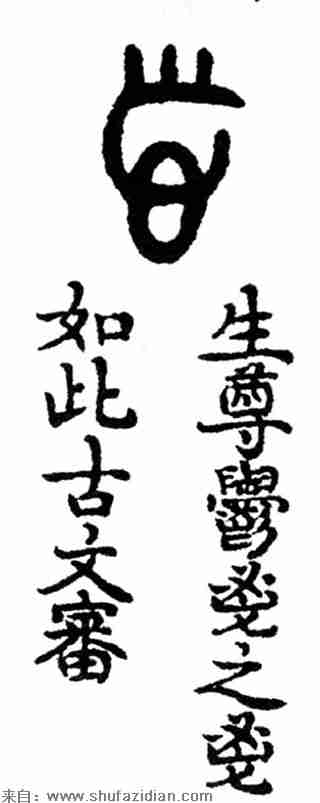 生尊鬱鬯之鬯
如此古文審
来自：www.shufazidian.com